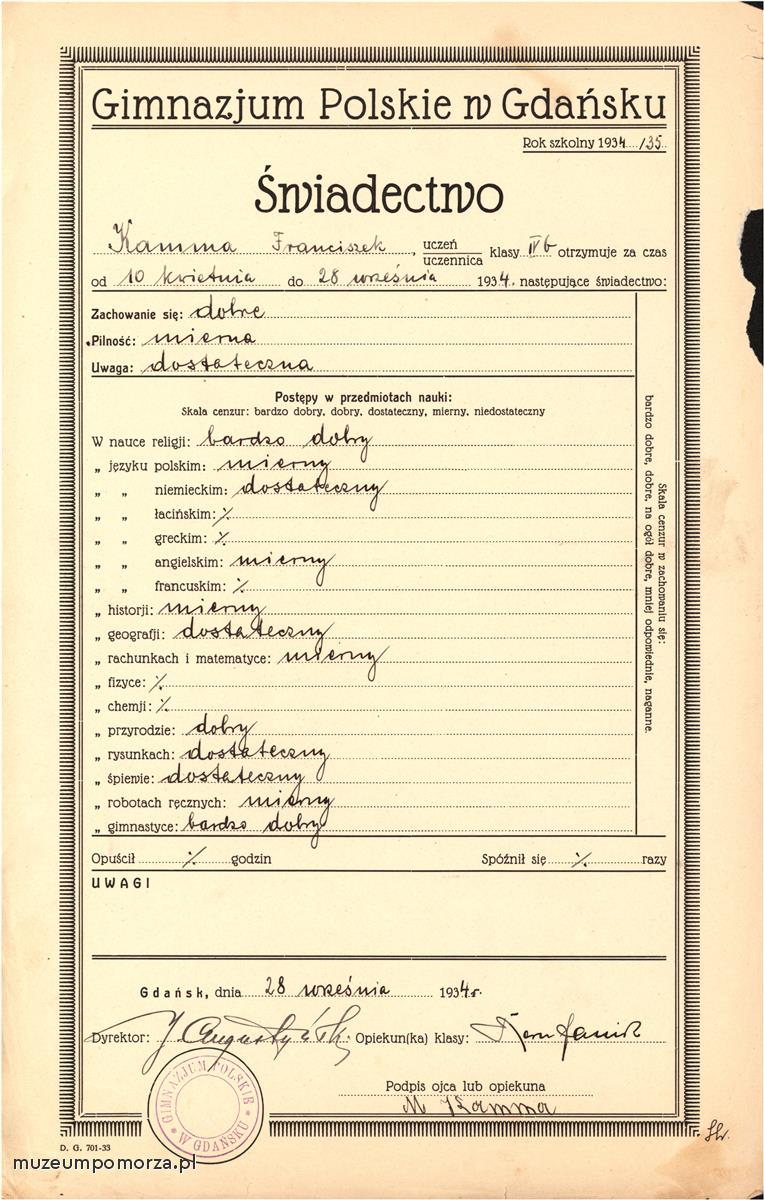 Gimnazjum Polskie w Gdańsku
Rok szkolny 1934/35
Świadectwo
Kamma Franciszek, uczeń
uczennica klasy IVb otrzymuje za czas
od 10 kwietnia do 28 września 1934. następujące świadectwo:
Zachowanie się: dobre
Pilność: mierna
Uwaga: dostateczna
Postępy w przedmiotach nauki:
Skala cenzur: bardzo dobry, dobry, dostateczny, mierny, niedostateczny
W nauce religji: bardzo dobry
„ języku polskim: mierny
„ „ niemieckim: dostateczny
„ „ łacińskim: ·/.
„ „ greckim: ·/.
„ „ angielskim: mierny
„ „ francuskim: ·/.
„ historji: mierny
„ geografji: dostateczny
„ rachunkach i matematyce: mierny
„ fizyce: ·/.
„ chemji: ·/.
„ przyrodzie: dobry
„ rysunkach: dostateczny
„ śpiewie: dostateczny
„ robotach ręcznych: mierny
„ gimnastyce: bardzo dobry
Skala cenzur w zachowaniu się:
bardzo dobre, dobre, na ogół dobre, mniej odpowiednie, naganne.
Opuścił ·/. godzin Spóźnił się ·/. razy
UWAGI
Gdańsk, dnia 28 września 1934r.
Dyrektor: J. Augustyński Opiekun(ka) klasy:
Podpis ojca lub opiekuna
M Kamma
GIMNAZJUM POLSKIE
* W GDAŃSKU *
D. G. 701-33
muzeumpomorza.pl